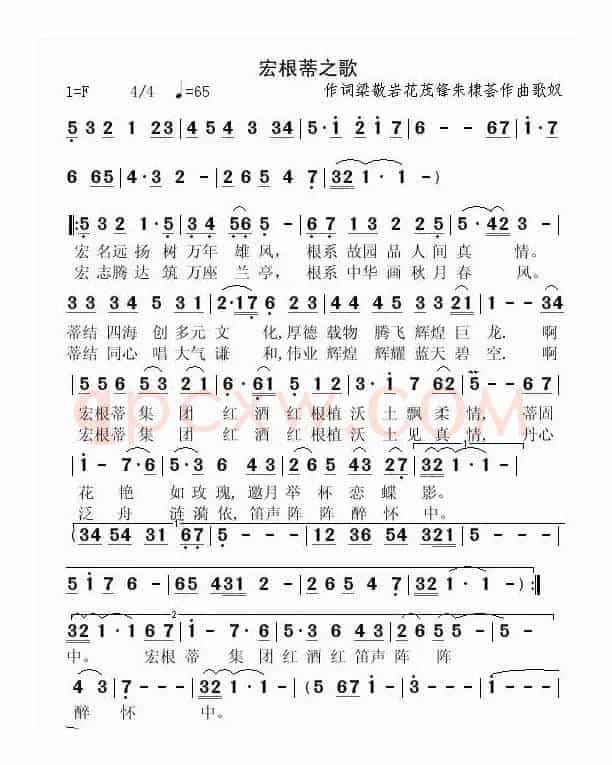 宏根蒂之歌
1=F 4/4 ♩=65 作词梁敬岩花茂锋朱棣荟作曲歌奴
5 3 2 1 23 | 4 5 4 3 - | 5·1 2 1 7 | 6·5 5 - |
6 65 | 4·3 2 - | 2 6 5 4 7 | 32 1· 1 - )
‖: 5 3 2 1·5 | 3 4 56 5 - | 6 7 1 3 2 2 5 | 5·42 3 - |
宏 名远 扬 树 万年 雄 风, 根系 故园 品 人 间 真 情。
宏 志腾 达 筑 万座 兰 亭, 根系 中华 画 秋 月 春 风。
33 34 5 31 | 2·17 6 23 | 44 45 33 21 | 1 - 34
蒂结 四海 创 多元 文 化,厚德 载物 腾飞 辉煌 巨 龙. 啊
蒂结 同心 唱 大气 谦 和,伟业 辉煌 辉耀 蓝天 碧 空. 啊
5 5 6 53 21 | 6·61 512 | 3·1 1 7 62 | 5 - - 67
宏根蒂 集 团 红 酒 红 根植 沃 土 飘 柔 情, 蒂固
宏根蒂 集 团 红 酒 红 根植 沃 土 见 真 情, 丹心
1 - 7·6 | 5·6 3 56 | 4·3 43 27 | 32 1· 1 - |
花 艳 如 玫 瑰, 邀月 举 杯 恋 蝶 影。
泛 舟 涟 漪 依, 笛声 阵 阵 醉 怀 中。
(34 54 31 67 | 5 - - - | 12 36 54 321 | 5 - - - |
5 1 7 6 - | 65 431 2 - | 2 6 5 4 7 | 32 1· 1 - ) :‖
2
32 1· 1 67 | 1 - - 7·6 | 5·6 3 5 6 | 4·3 43 27 |
中。 宏根 蒂 集 团 红 酒 红 笛声 阵 阵
4 3 | 7 - - - | 32 1· 1 - | (5 5 67 1 - | 3 - 1 - ) ‖
醉 怀 中。
qpcxw.com